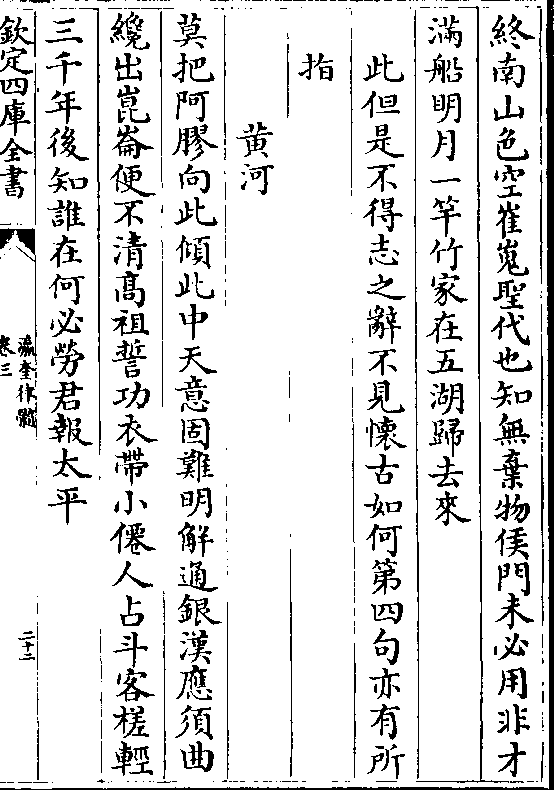 終南山色空崔嵬聖代也知無棄物侯門未必用非才
滿船明月一竿竹家在五湖歸去來
此但是不得志之辭不見懷古如何第四句亦有所
指
黄河
莫把阿膠向此傾此中天意固難明解通銀漢應須曲
纔出崑崙便不清髙祖誓功衣帶小僊人占斗客槎輕
三千年後知誰在何必勞君報太平
欽定四庫全書
瀛奎律髓
卷三
二十二